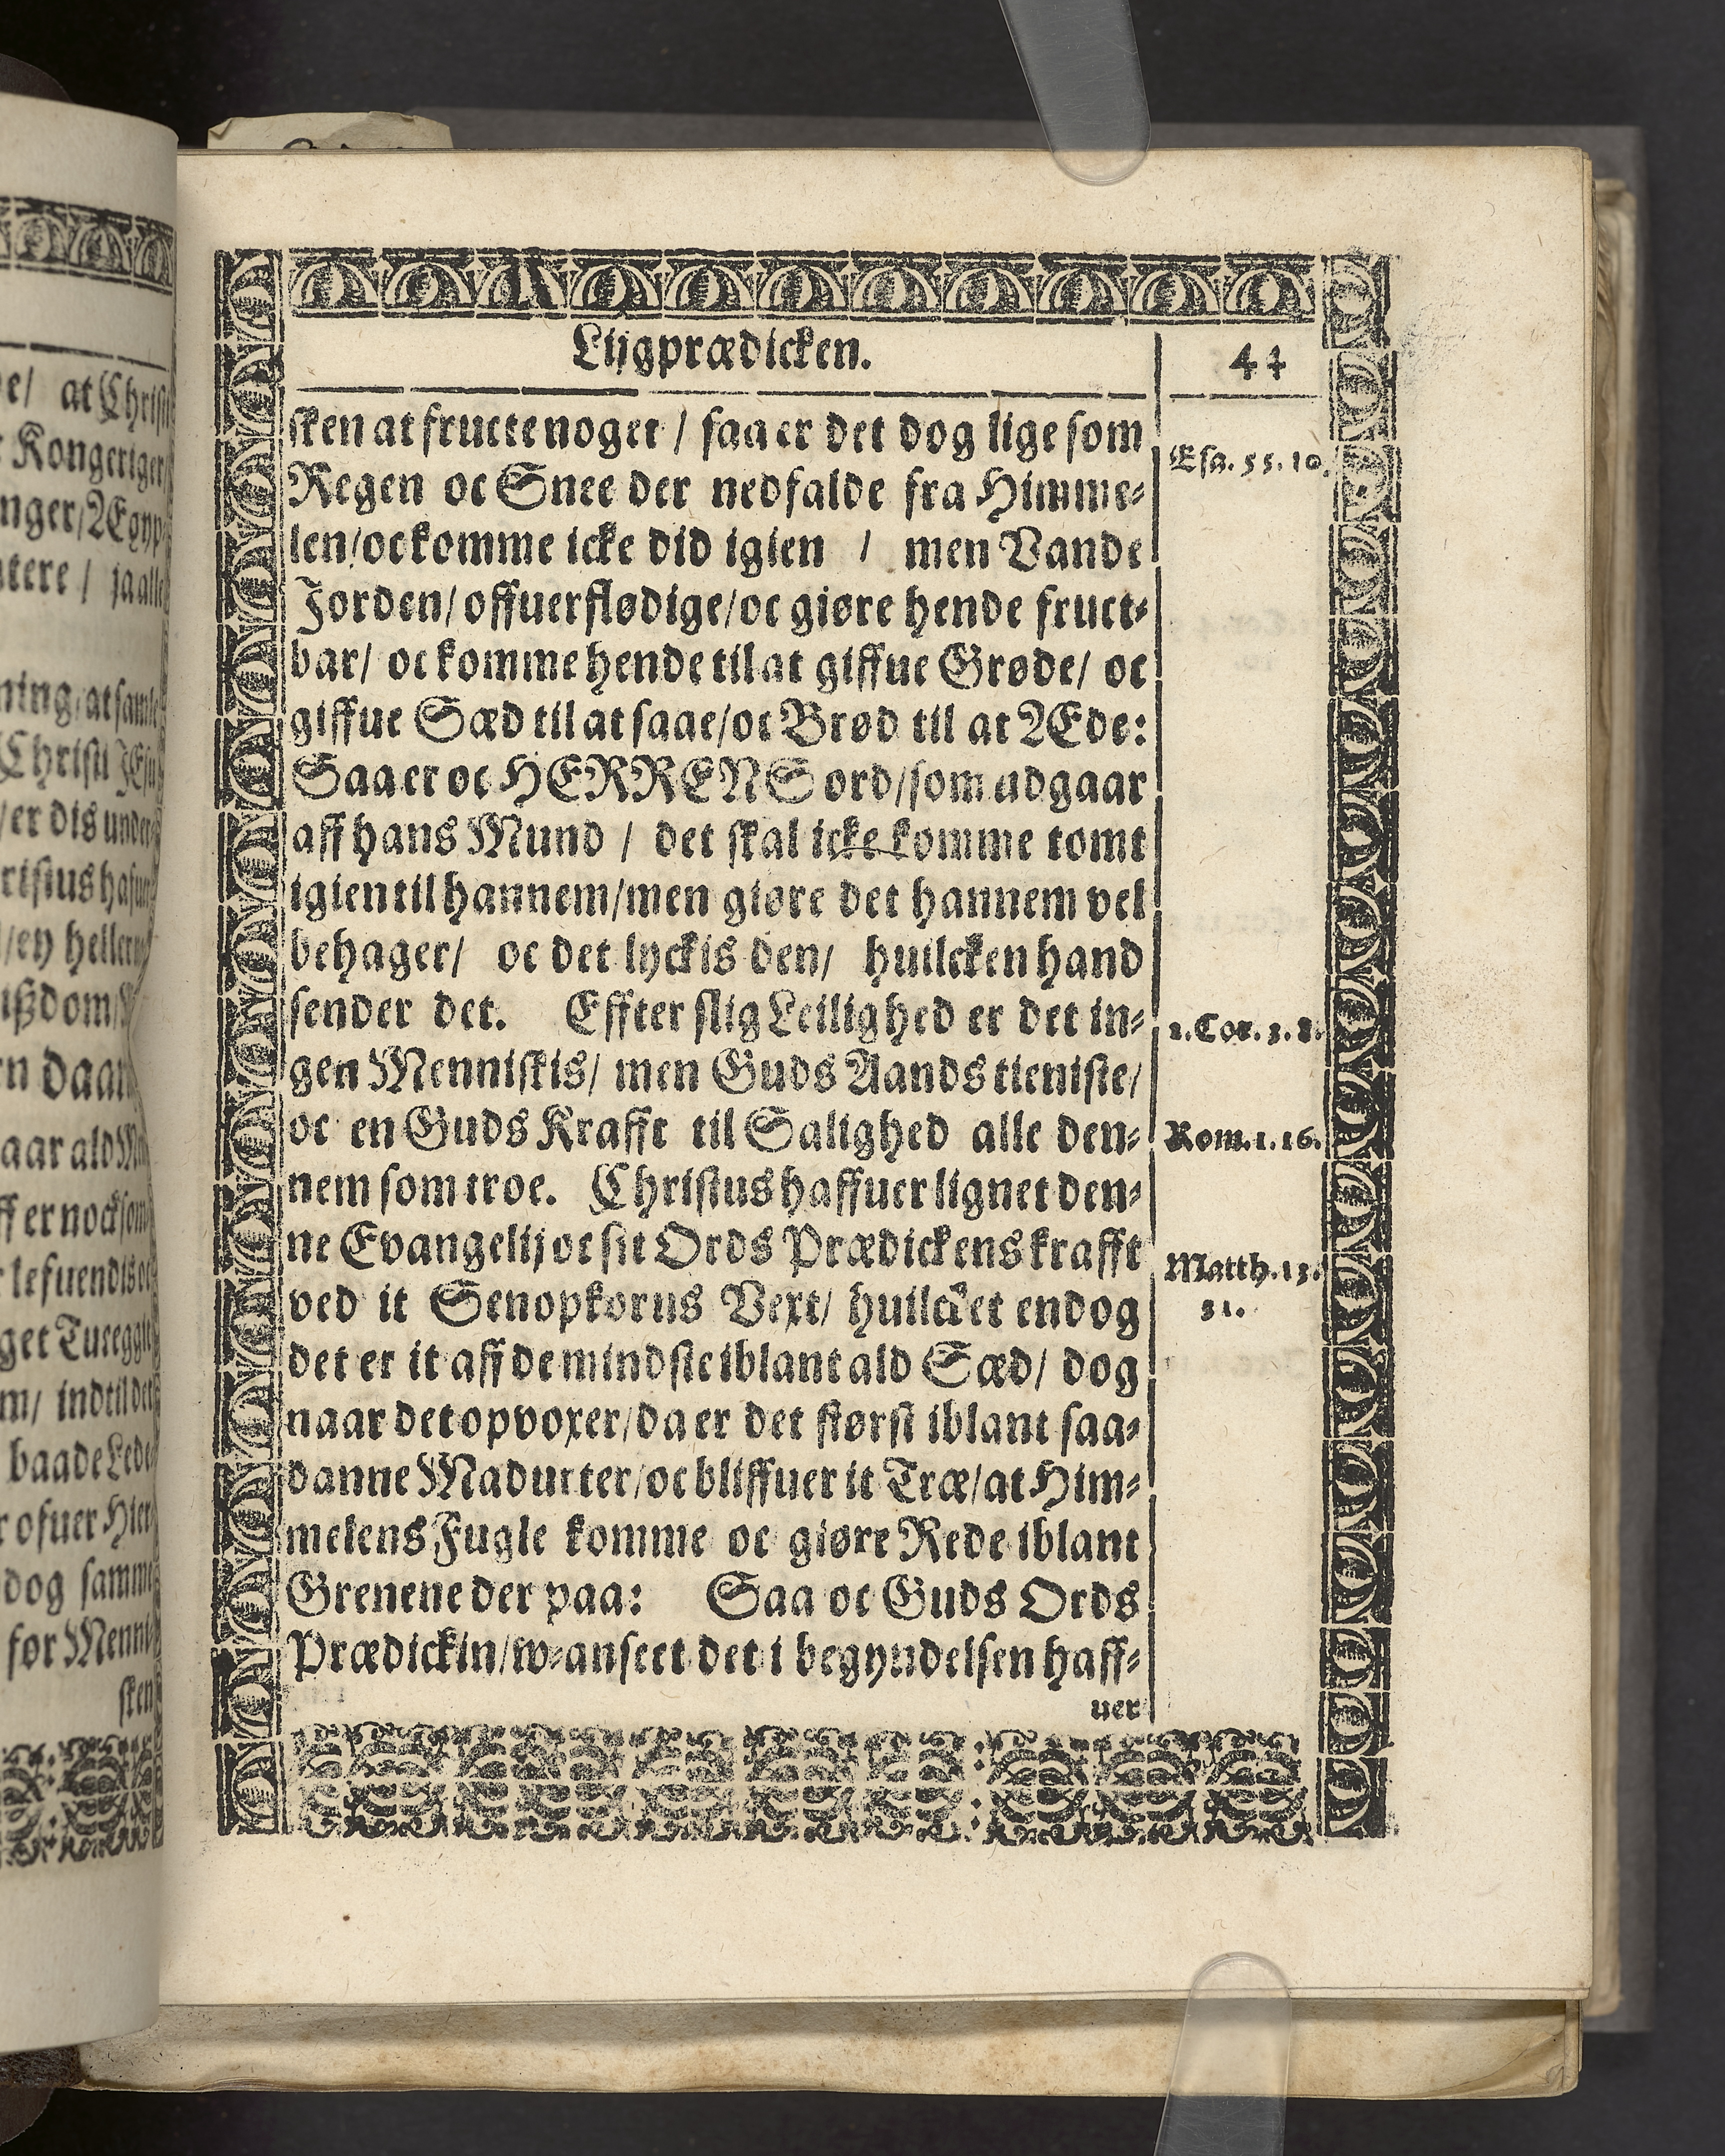 Lijgprædicken.
44
sken at fructe noget / saa er det dog lige som
Esa. 55. 10.
Regen oc Snee der nedfalde fra Himme-
len/oc komme icke did igien / men Vande
Jorden/ offuerflødige/oc giøre hende fruct-
bar/ oc komme hende til at giffue Grøde/ oc
giffue Sæd til at saae/oc Brød til at Æde:
Saa er oc HERRENS ord/som udgaar
aff hans Mund / det skal icke komme tomt
igien til hannem/men giøre det hannem vel
behager/ oc det lyckis den/ huilcken hand
sender det. Effter slig Leilighed er det in-
1. Cor. 3. 8.
gen Menniskis/ men Guds Aands tieniste/
oc en Guds Krafft til Salighed alle den-
Rom. 1. 16.
nem som troe. Christus haffuer lignet den-
ne Evangelij oc sit Ords Prædickens krafft
Matth. 13.
ved it Senopkorns Vext/ huilcket endog
31.
det er it aff de mindste iblant ald Sæd/ dog
naar det opvoxer/da er det størst iblant saa-
danne Madurter/oc bliffuer it Træ/at Him-
melens Fugle komme oc giøre Rede iblant
Grenene der paa: Saa oc Guds Ords
Prædickin/w-anseet det i begyndelsen haff-
uer